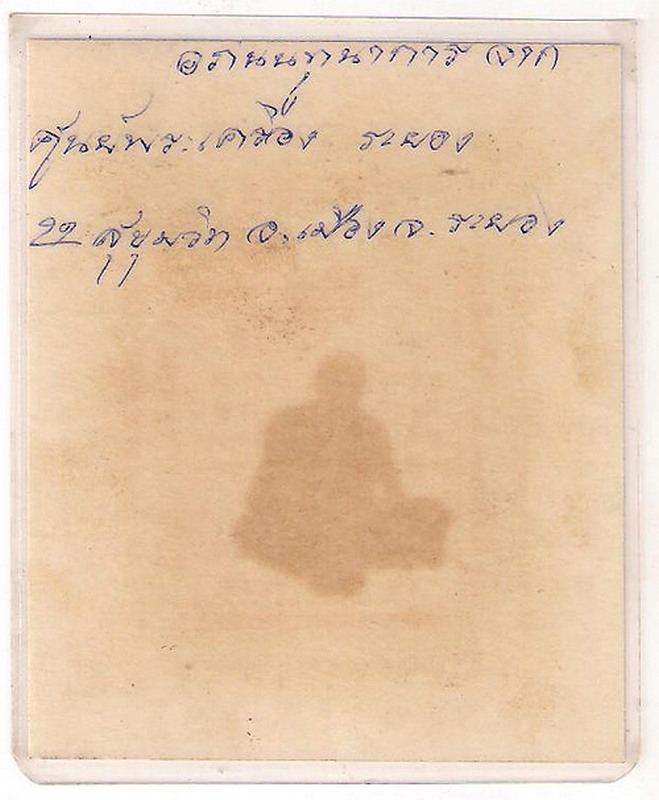 อภินนทนาการ จาก
ศูนย์พระเครื่อง ระยอง
22 สุขุมวิท อ.เมือง จ.ระยอง